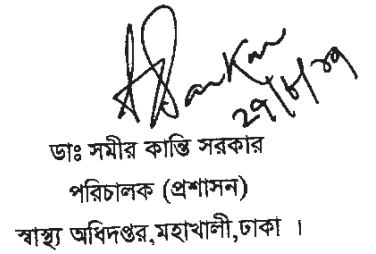 ডাঃ সমীর কান্তি সরকার
পরিচালক (প্রশাসন)
স্বাস্থ্য অধিদপ্তর,মহাখালী,ঢাকা ।